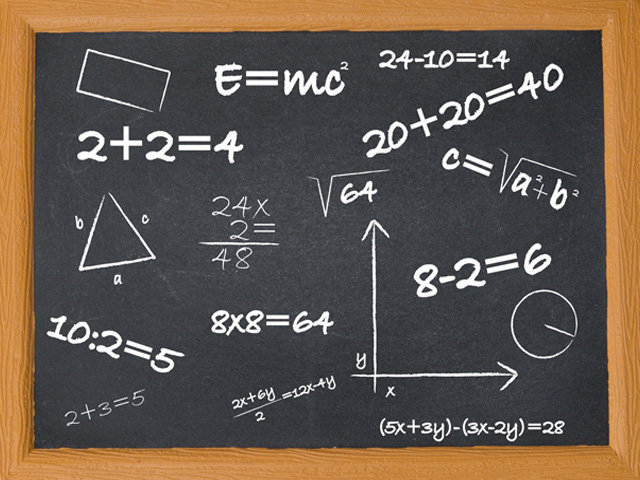 E=mc²
24-10=14
2+2=4
20+20=40
c=√a²+b²
√64
24x
2=
48
b
c
a
8-2=6
10:2=5
8x8=64
y
x
2+3=5
2x+6y
2
=12x-4y
(5x+3y)-(3x-2y)=28